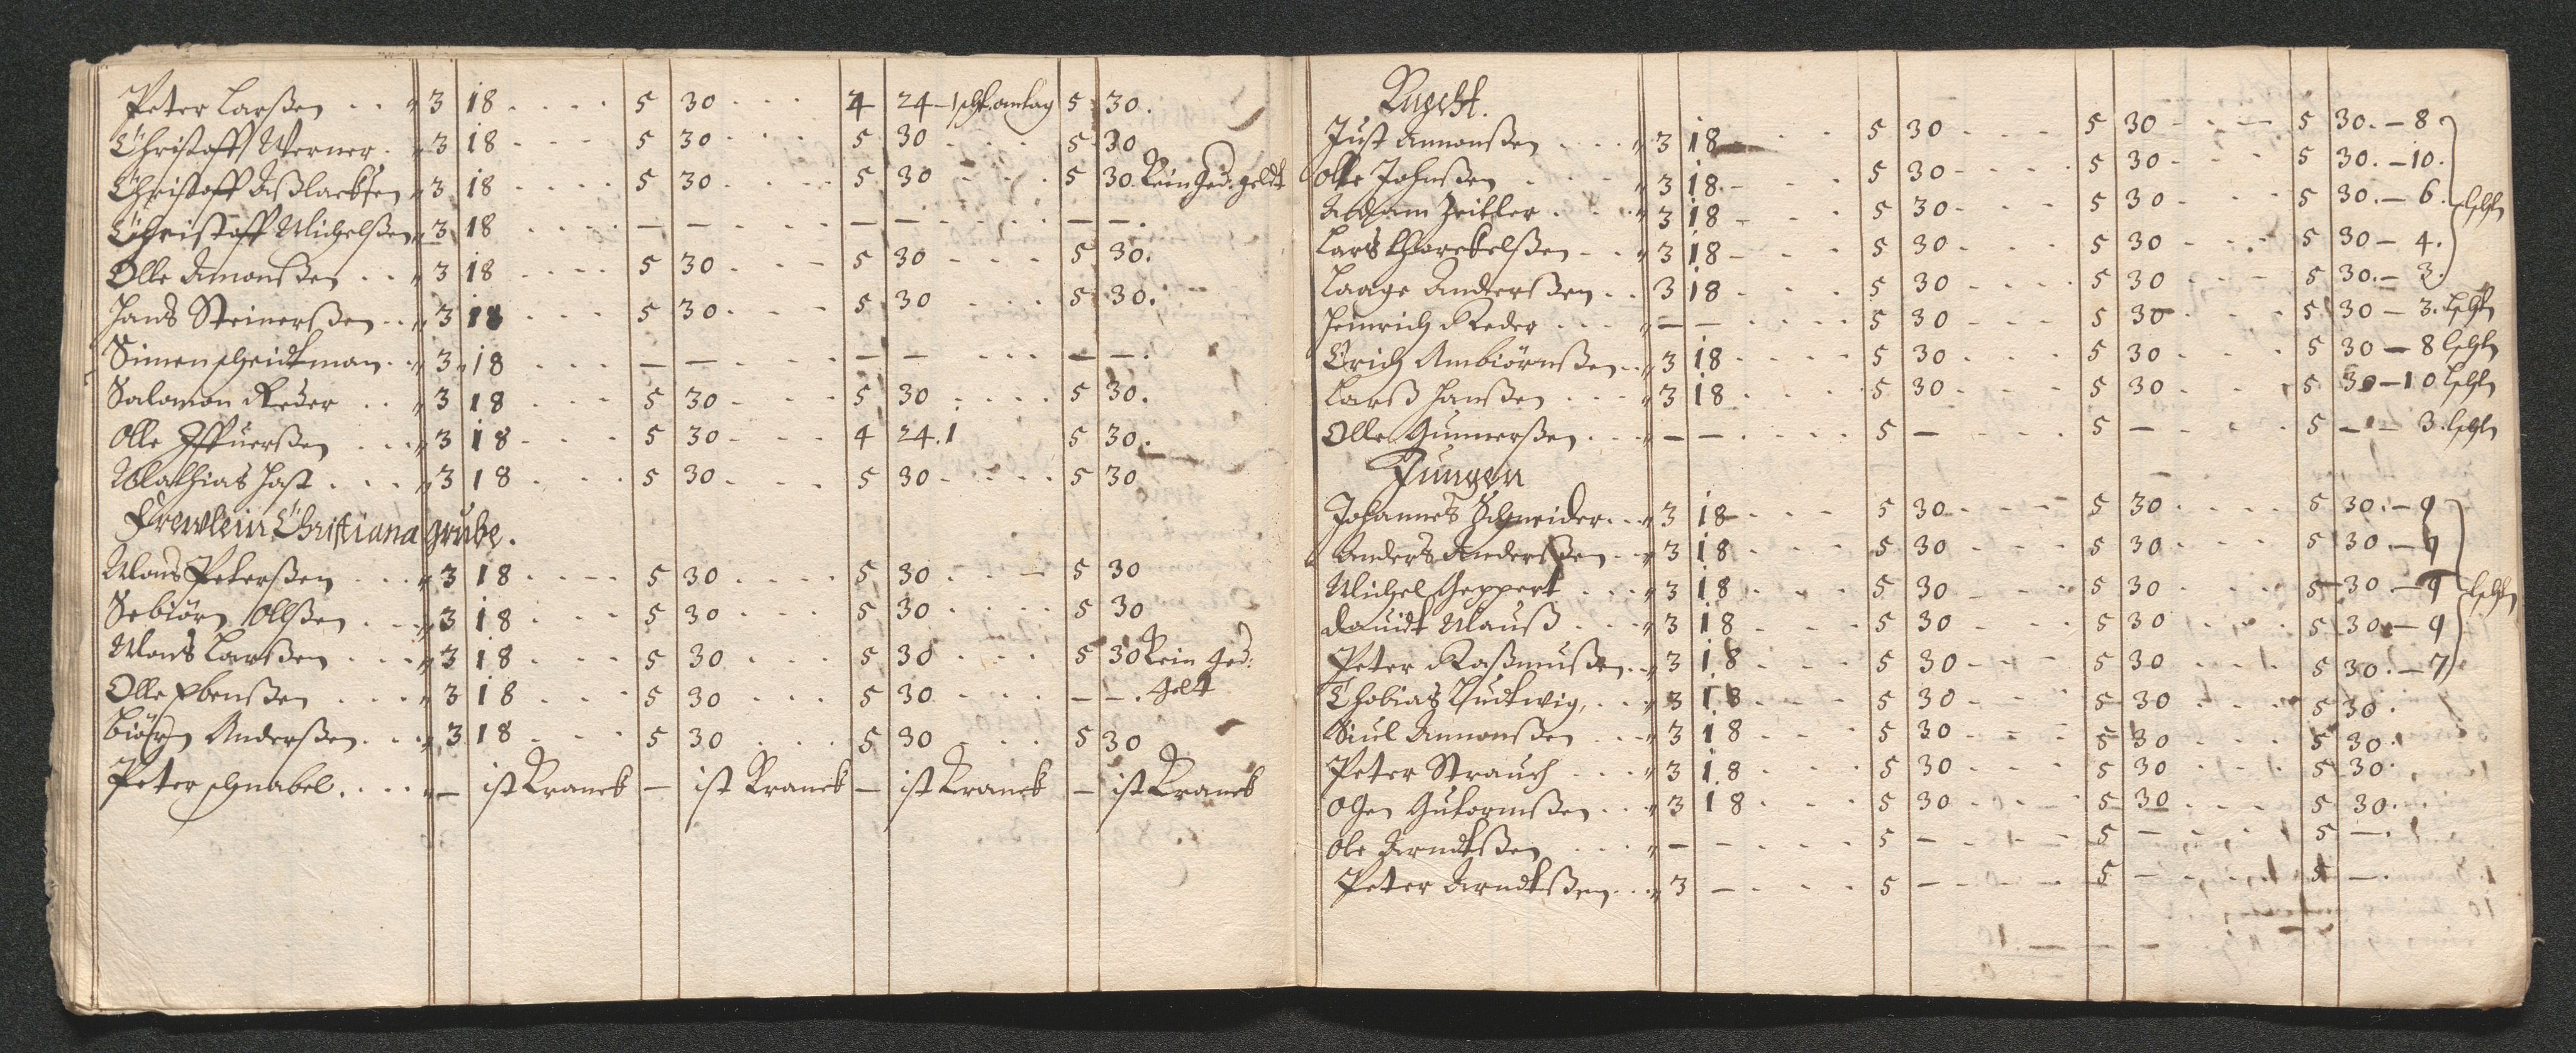 Peter Larßen . . " 3 18 . . . . 5 30 . . . 4 24 – 1 schl. 5 30.
Christoff Werner . " 3 18 . . . 5 30 . . . 5 30 . . . . 5 30
Christoff " 3 18 . . . . 5 30 . . . . 5 30 . . . 5 30. Kein ged: geldt
Christoff Michelßen " 3 18 . . . . — — . . . — — . . . . — —.
Olle Amonßen . . " 3 18 . . . . 5 30 . . . 5 30 . . . 5 30.
Hans Steinerßen . . " 3 18 . . . 5 30 . . . 5 30 . . . 5 30.
Simen Scheidtman . . " 3 18 . . . — — . . . — — . . . . — —.
Salomon Reder . . " 3 18 . . . 5 30 . . . 5 30 . . . . 5 30.
Olle . . . " 3 18 . . . 5 30 . . . 4 24. 1 5 30.
Mathias Jost . . . " 3 18 . . . 5 30 . . . 5 30 . . . . 5 30
Frewlein Christiana grube.
Mons Peterßen . . . " 3 18 . . . . 5 30 . . . . 5 30 . . . 5 30
Sebiörn Olßen . . . " 3 18 . . . 5 30 . . . 5 30 . . . . 5 30
Mons Larßen . . . " 3 18 . . . 5 30 . . . 5 30 . . . 5 30 Kein ged:
geldt
Olle Ebenßen . . . " 3 18 . . . 5 30 . . . 5 30 . . . — —.
Biörn Anderßen . . . " 3 18 . . . 5 30 . . . 5 30 . . . 5 30
Peter Schnabel . . . . " — ist Kranck — ist Kranck — ist Kranck — ist Kranck
Knecht.
Just Amonßen . . . . " 3 18 . . . 5 30 . . . 5 30 . . . 5 30. – 8
Olle Johnßen . . . . " 3 18. . . . 5 30 . . . 5 30 . . . 5 30. – 10.
Adam Zeitler . . . " 3 18 . . . 5 30 . . . 5 30 . . . 5 30. – 6. Lßh
Lars Thorekelßen . . " 3 18 . . . 5 30 . . . 5 30 . . . 5 30 – 4.
Laage Anderßen . . 3 18 . . . 5 30 . . . 5 30 . . . 5 30. – 3.
Heinrich Reder . . . " — — . . . . 5 30 . . . 5 30 . . . 5 30 – 3. Lßh
Erich Ambiörnßen . . " 3 18 . . . . 5 30 . . . 5 30 . . . 5 30 – 8 Lßh
Larß Hanßen . . . . " 3 18 . . . . 5 30 . . . 5 30 . . . 5 30 – 10 Lßh
Olle Gunnerßen . . . " — — . . . . 5 — . . . 5 — . . . 5 — – 3. Lßh
Jungen
Johannes Schneider . . . " 3 18 . . . 5 30 . . . 5 30 . . . . 5 30. – 9
Anders Anderßen . . . " 3 18 . . . 5 30 . . . 5 30 . . . 5 30 – 9
Michel Geppert . . . " 3 18 . . . 5 30 . . . 5 30 . . . 5 30 – 9 Lßh
Dauidt Mauß . . . . " 3 18 . . . 5 30 . . . 5 30 . . . 5 30 – 9
Peter Raßmußen . . " 3 18 . . . 5 30 . . . 5 30 . . . 5 30. – 7
Thobias Ludtwig, . . . " 3 18 . . . 5 30 . . . 5 30 . . . 5 30.
Siul Amonßen . . . " 3 18 . . . 5 30 . . . 5 30 . . . 5 30.
Peter Strauch . . . " 3 18 . . . 5 30 . . . 5 30 . . . 5 30.
Gutormßen . . . " 3 18 . . . 5 30 . . . 5 30 . . . 5 30.
Ole Arndtßen . . . " — — . . . 5 — . . . 5 — . . . 5 —.
Peter Arndtßen . . . " 3 — . . . 5 — . . . 5 — . . . 5 —.